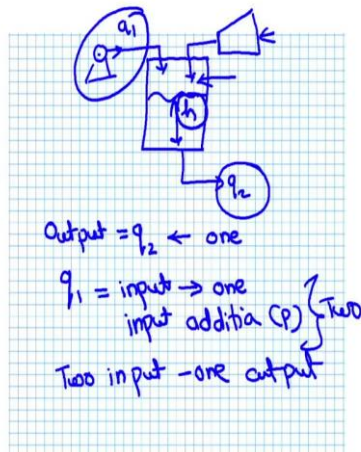 q1
h
q2
Output = q2 ← one
q1 = input → one
input additia (P) } Two
Two input - one output